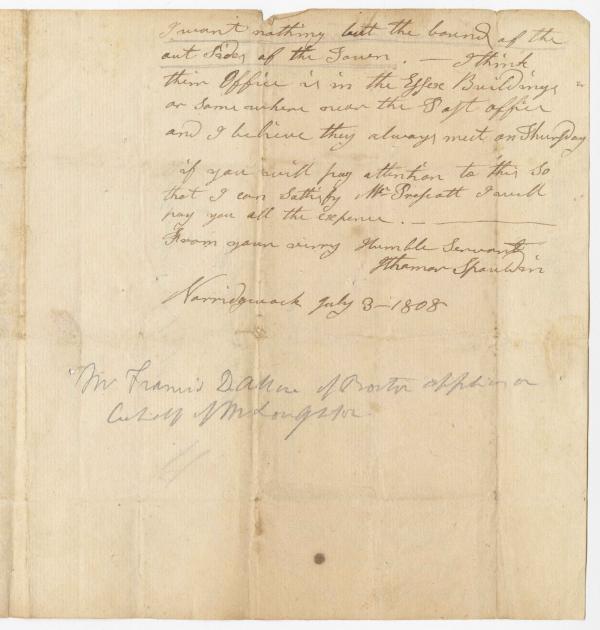 I want nothing but the bound of the
out Sides of the Town. — I think
thier Office is in the Essex Buildings
or some where near the Post office
and I believe they always meet on Thursday
if you will pay attention to this So
that I can Satisfy Mr Prescott I will
pay you all the expence. —
From your very Humble Servant
Ithamar Spauldin
Norridgwock July 3 — 1808
Mr Francis of Boston on
behalf of